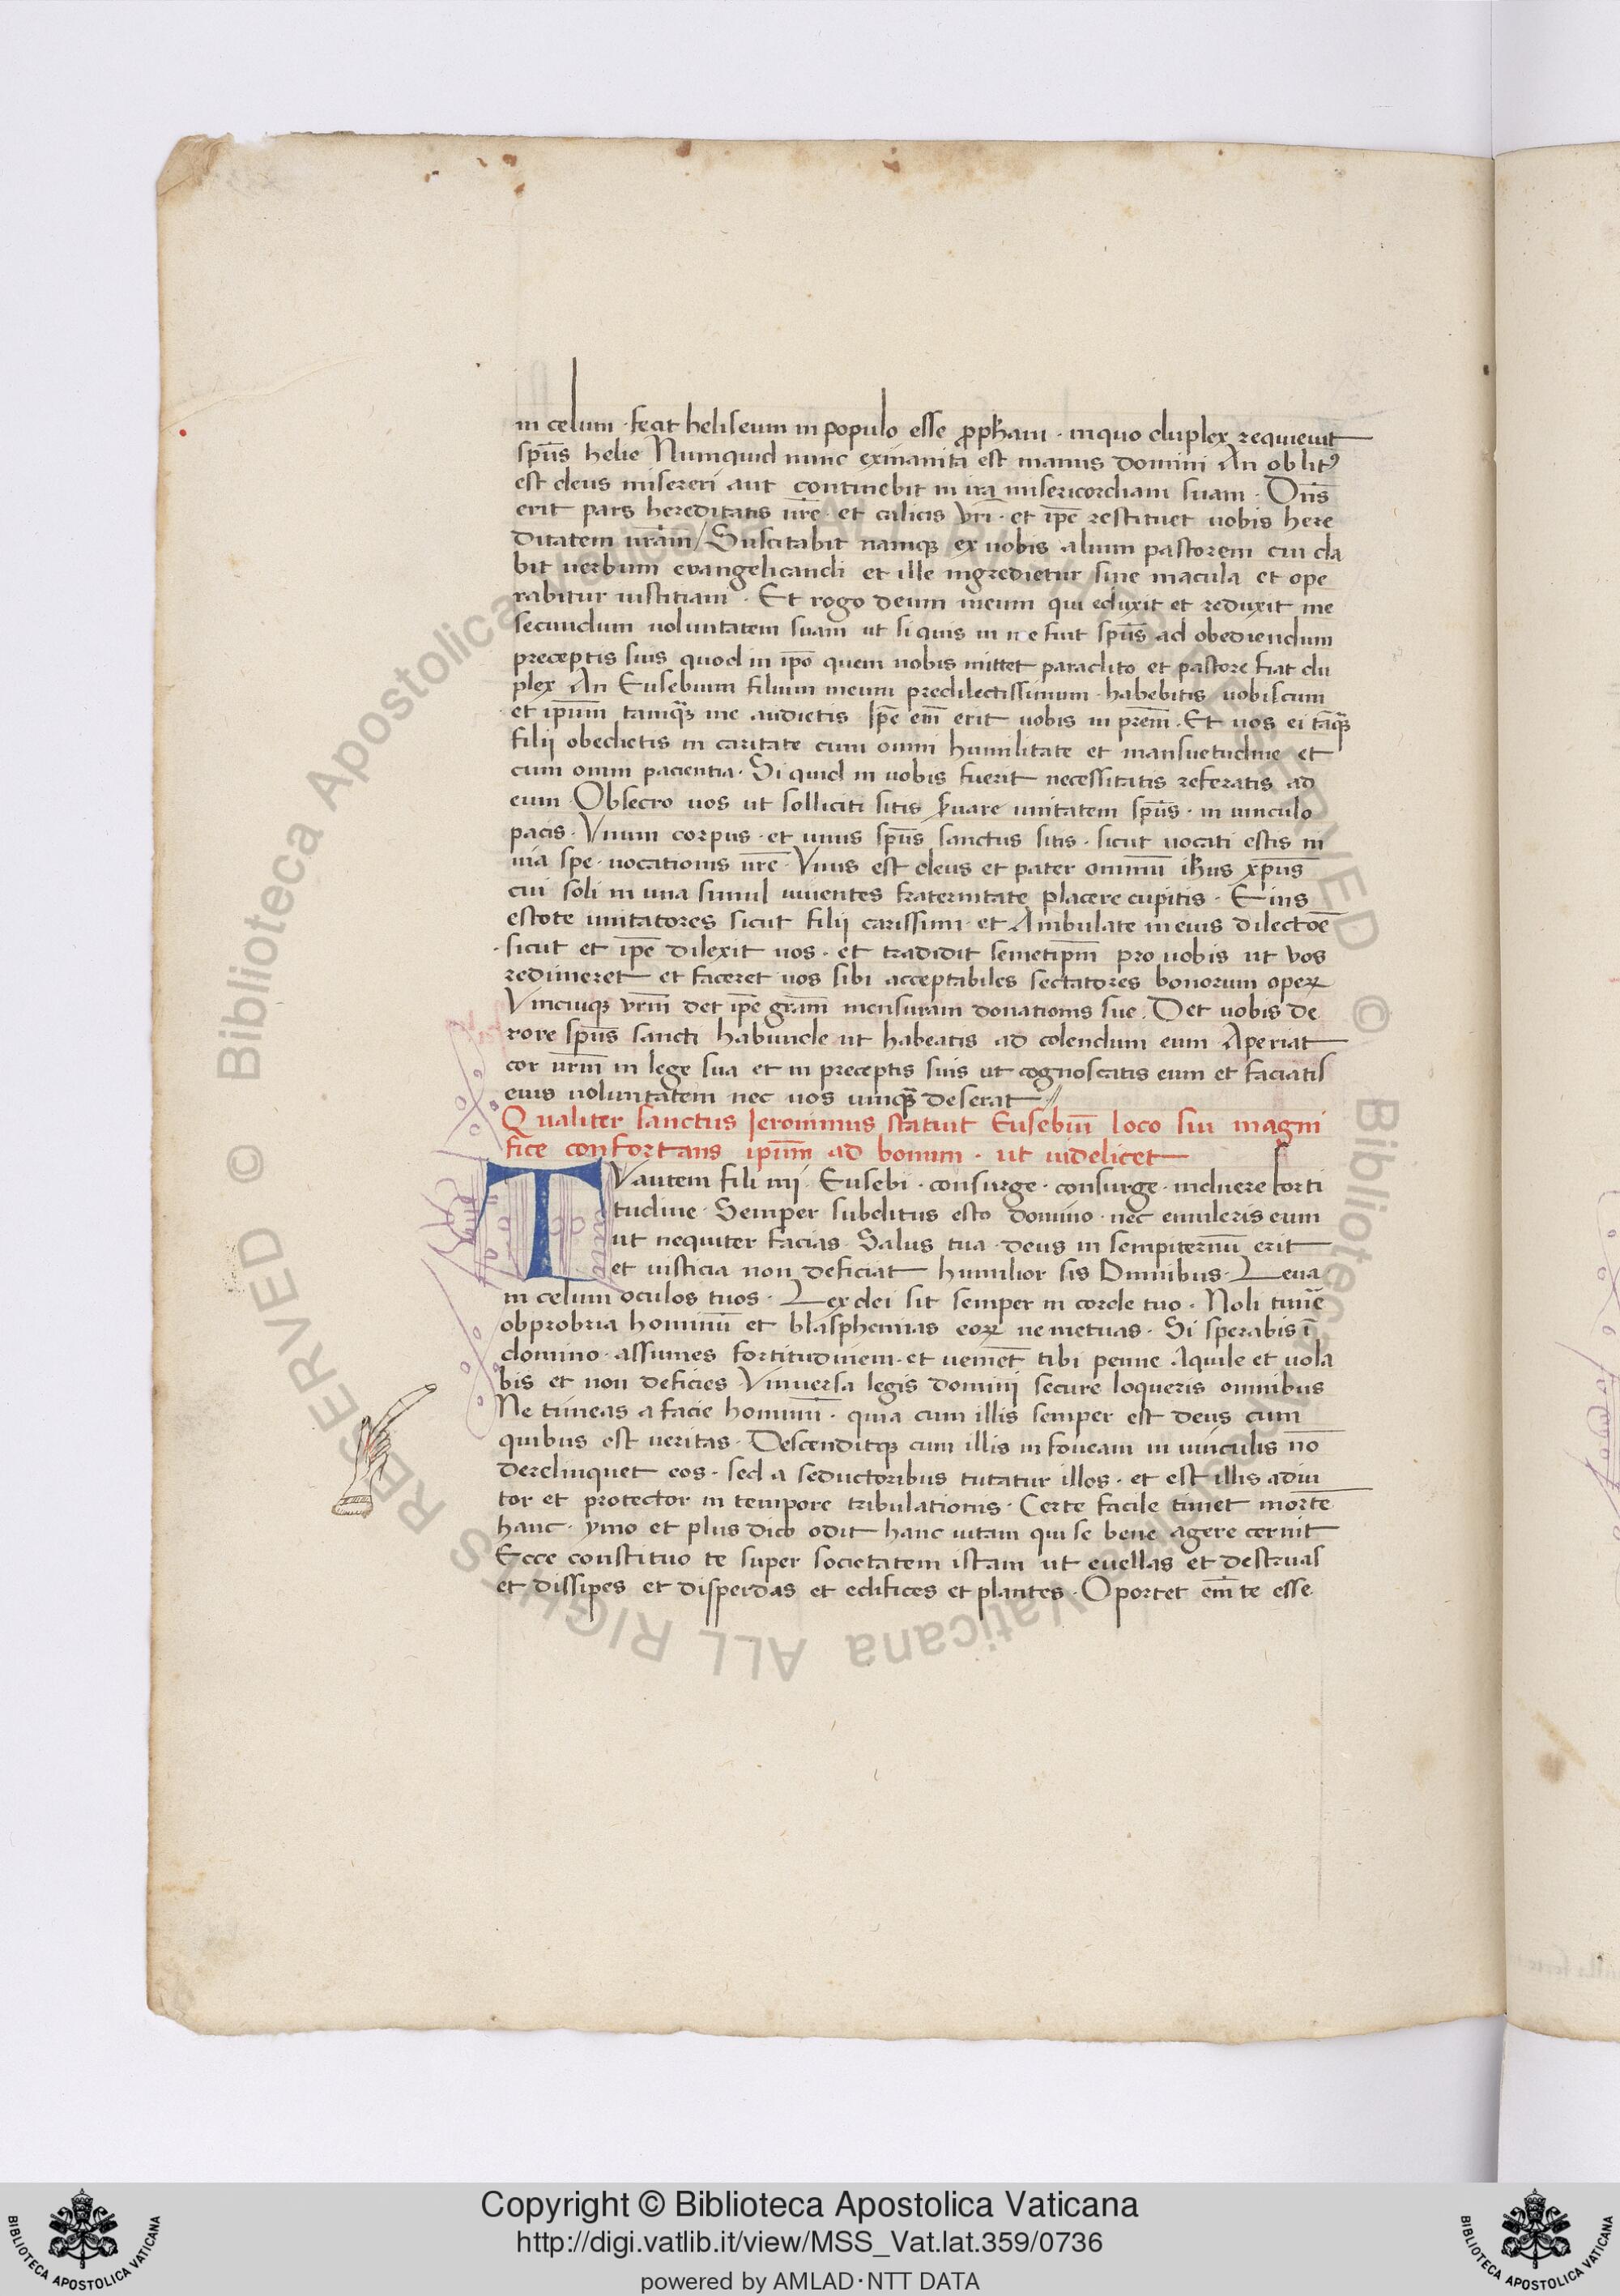 in celum · fecit heliseum in populo esse ꝓpħam · in quo duplex requieuit
spūs helie Numquid nunc exinanita est manus domini An oblitꝰ
est deus misereri aut continebit in ira misericordiam suam · Dn̄s
erit pars hereditatis ur̄e · et calicis vr̄i · et ip̄e restituet uobis here
ditatem ur̄am / Suscitabit namqꝫ ex uobis alium pastorem cui da
bit uerbum evangelicandi et ille ingredietur sine macula et ope
rabitur iustitiam · Et rogo deum meum qui eduxit et reduxit me
secundum uoluntatem suam ut si quis in me fuit spūs ad obediendum
preceptis suis quod in ip̄o quem uobis mittet paraclito et pastore fiat du
plex An Eusebium filium meum predilectissimum · habebitis uobiscum
et ip̄um tamqꝫ me audietis Ip̄e em̄ erit uobis in pr̄em · Et uos ei tāqꝫ
filij obedietis in caritate cum omni humilitate et mansuetudine et
cum omni pacientia · Si quid in uobis fuerit necessitatis referatis ad
eum · Obsecro uos ut solliciti sitis ẜuare unitatem spūs · in uinculo
pacis · Vnum corpus · et unus spūs sanctus sitis · sicut uocati estis in
una spe · uocationis ur̄e · Vnus est deus et pater omniū iħus xp̄us
cui soli in una simul uiuentes fraternitate placere cupitis · Eius
estote imitatores sicut filij carissimi · et Ambulate in eius dilectōe
sicut et ip̄e dilexit uos · et tradidit semetip̄m pro uobis ut vos
redimeret et faceret uos sibi acceptabiles sectatores bonorum operꝝ
Vnicuiqꝫ vr̄m det ip̄e gr̄am mensuram donationis sue · Det uobis de
rore spūs sancti habunde ut habeatis ad colendum eum Aperiat
cor ur̄m in lege sua et in preceptis suis ut cognoscatis eum et faciatis
eius uoluntatem nec uos umqꝫ deserat //
Qualiter sanctus Jeronimus statuit Eusebiū loco sui magni
fice confortans ip̄um ad bonum · ut uidelicet
TV autem fili mi Eusebi · consurge · consurge · induere forti
tudine · Semper subditus esto domino · nec emuleris eum
ut nequiter facias · Salus tua · deus in sempiternū erit
et iusticia non deficiat humilior sis Omnibus · Leua
in celum oculos tuos · Lex dei sit semper in corde tuo · Noli timēe
obprobria hominū et blasphemias eoꝝ ne metuas · Si sperabis ī
domino · assumes fortitudinem · et uenient̄ tibi penne Aquile et uola
bis et non deficies Vniuersa legis domini secure loqueris omnibus
Ne timeas a facie hominū · quia cum illis semper est deus cum
quibus est ueritas · Descenditqꝫ cum illis in foueam in uinculis nō
derelinquet eos · sed a seductoribus tutatur illos · et est illis adiu
tor et protector in tempore tribulationis · Certe facile timet mortē
hanc · ymo et plus dico odit hanc uitam qui se bene agere cernit
Ecce constituo te super societatem istam ut euellas et destruas
et dissipes et disperdas et edifices et plantes · Oportet em̄ te esse
Copyright © Biblioteca Apostolica Vaticana
http://digi.vatlib.it/view/MSS_Vat.lat.359/0736
powered by AMLAD·NTT DATA
BIBLIOTECA APOSTOLICA VATICANA
BIBLIOTECA APOSTOLICA VATICANA
© Biblioteca Apostolica Vaticana ALL RIGHTS RESERVED
© Biblioteca Apostolica Vaticana ALL RIGHTS RESERVED